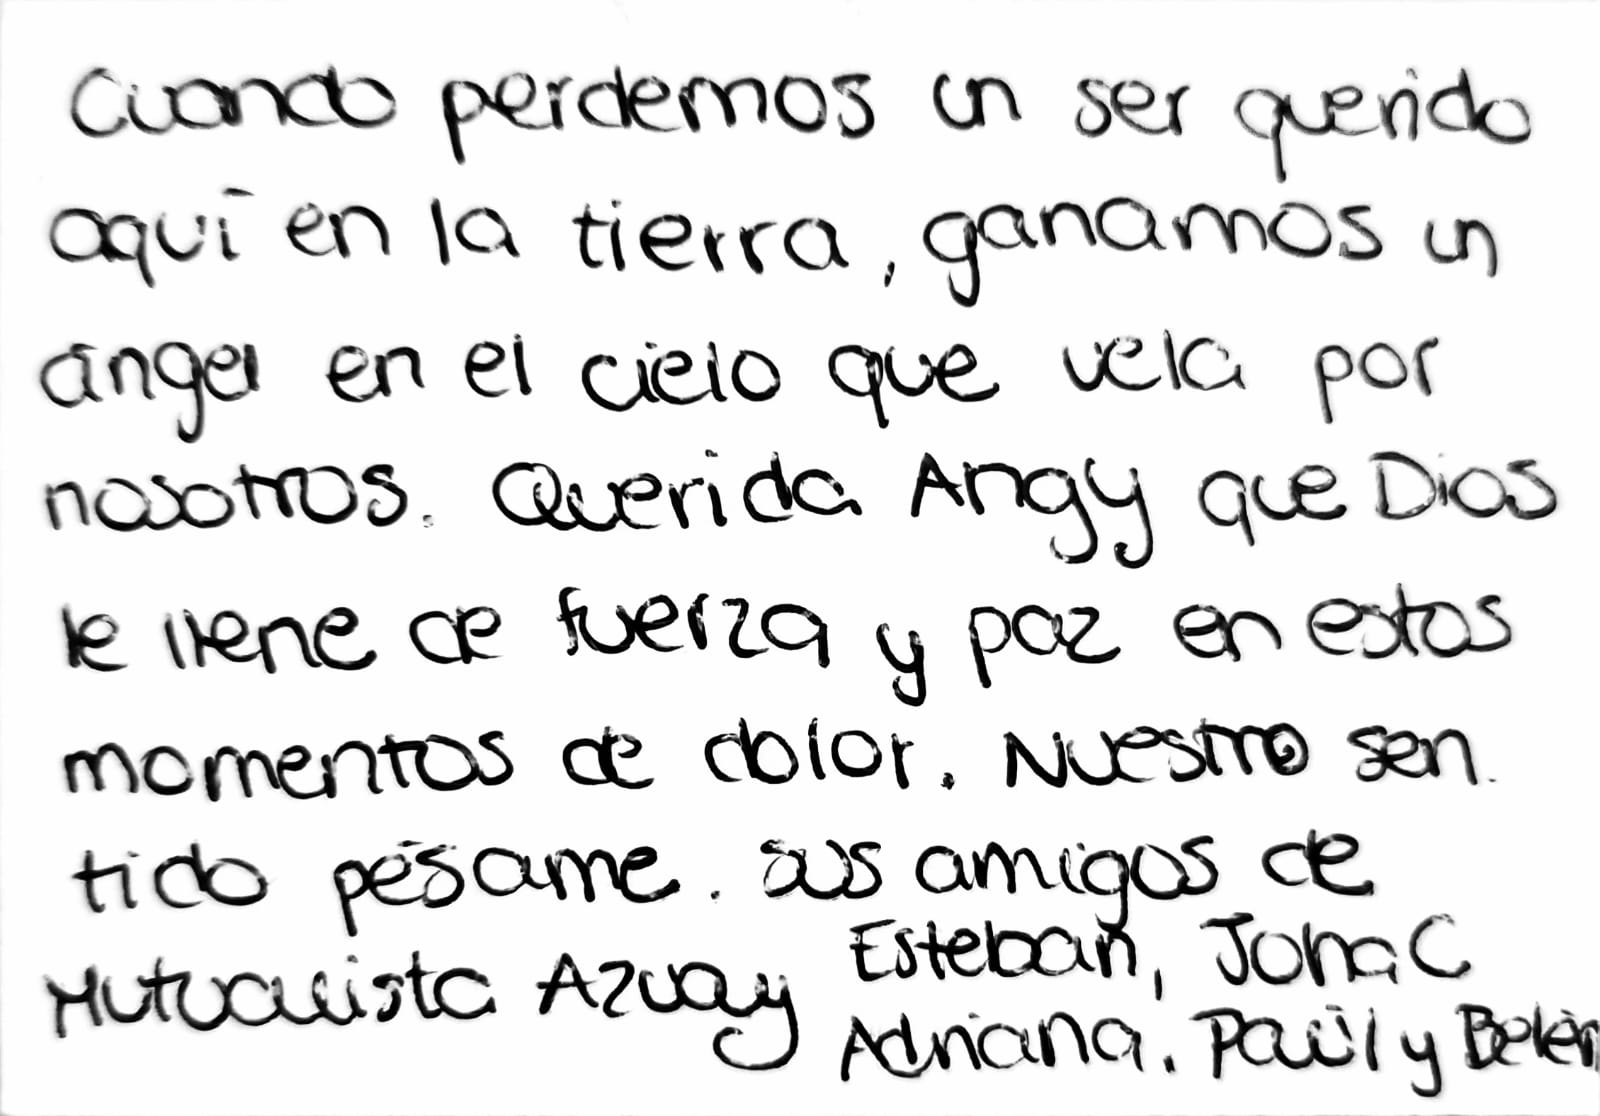 Cuando perdemos un ser querido
aquí en la tierra, ganamos un
ángel en el cielo que vela por
nosotros. Querida Angy que Dios
le llene de fuerza y paz en estos
momentos de dolor. Nuestro sen
tido pésame. sus amigos de
Mutualista Azuay Esteban, Joha C
Adriana. Paúl y Belén